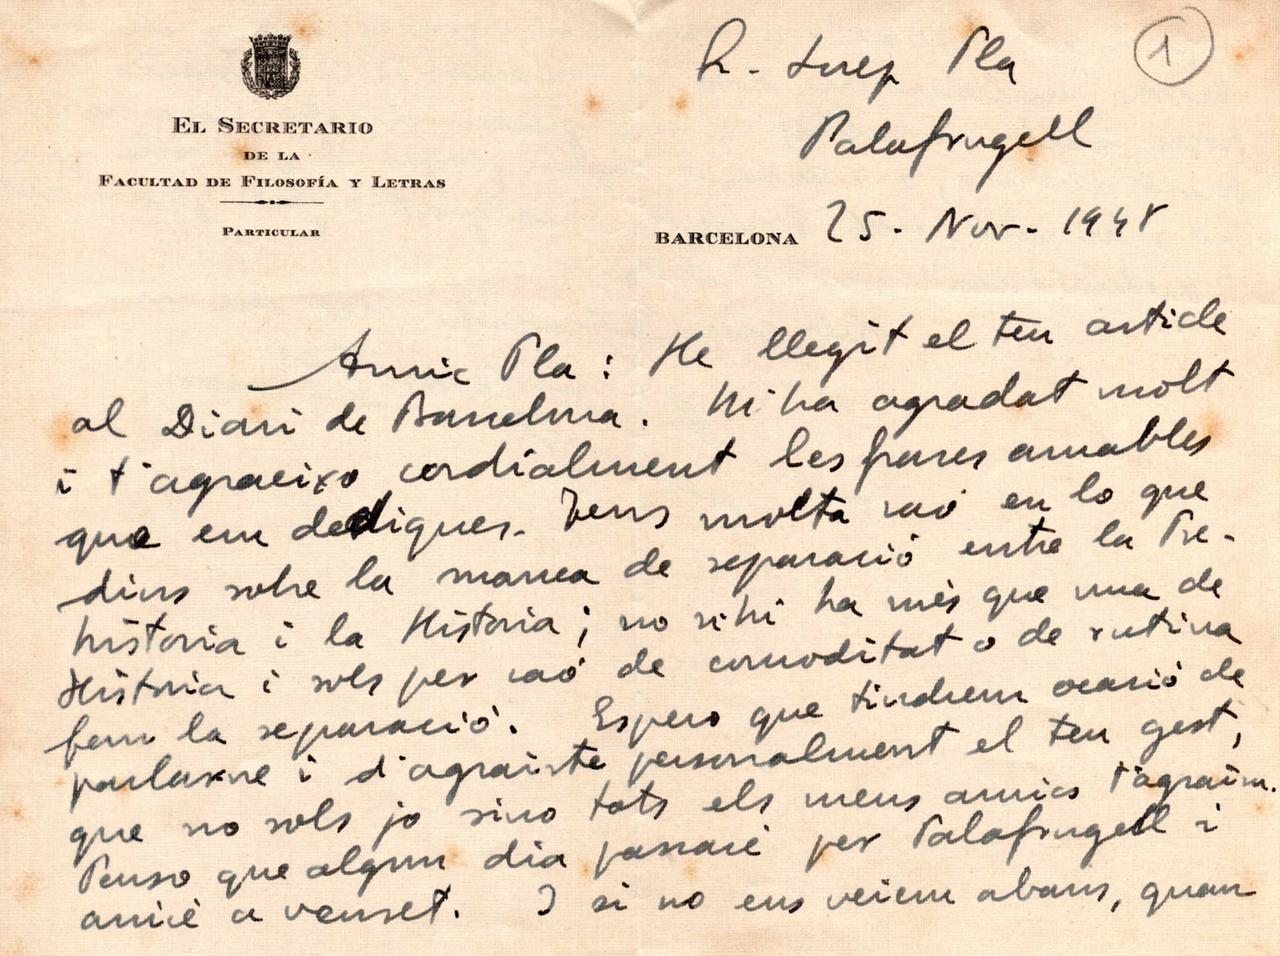 EL SECRETARIO
DE LA
FACULTAD DE FILOSOFÍA Y LETRAS
PARTICULAR
1
Sr. Josep Pla
Palafrugell
BARCELONA 25 - Nov - 1948
Amic Pla : He llegit el teu article
al Diari de Barcelona. M'ha agradat molt
i t'agraeixo cordialment les frases amables
que em dediques. Tens molta raó en lo que
dius sobre la manca de separació entre la Pre-
historia i la Historia ; no n'hi ha més que una de
Historia i sols per raó de comoditat o de rutina
fem la separació. Espero que tindrem ocasió de
parlarne i d'agrairte personalment el teu gest,
que no sols jo sino tots els meus amics t'agraim.
Penso que algun dia passaré per Palafrugell i
aniré a veuret. I si no ens veiem abans, quan